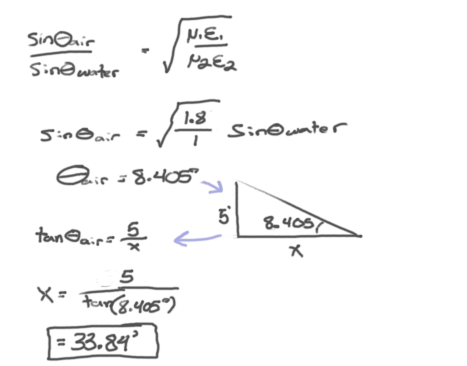 sinθair / sinθwater = √(μ₁ε₁ / μ₂ε₂)
sinθair = √(1.8 / 1) sinθwater
θair = 8.405°
5'
8.405°
x
tanθair = 5 / x
x = 5 / tan(8.405°)
= 33.84'